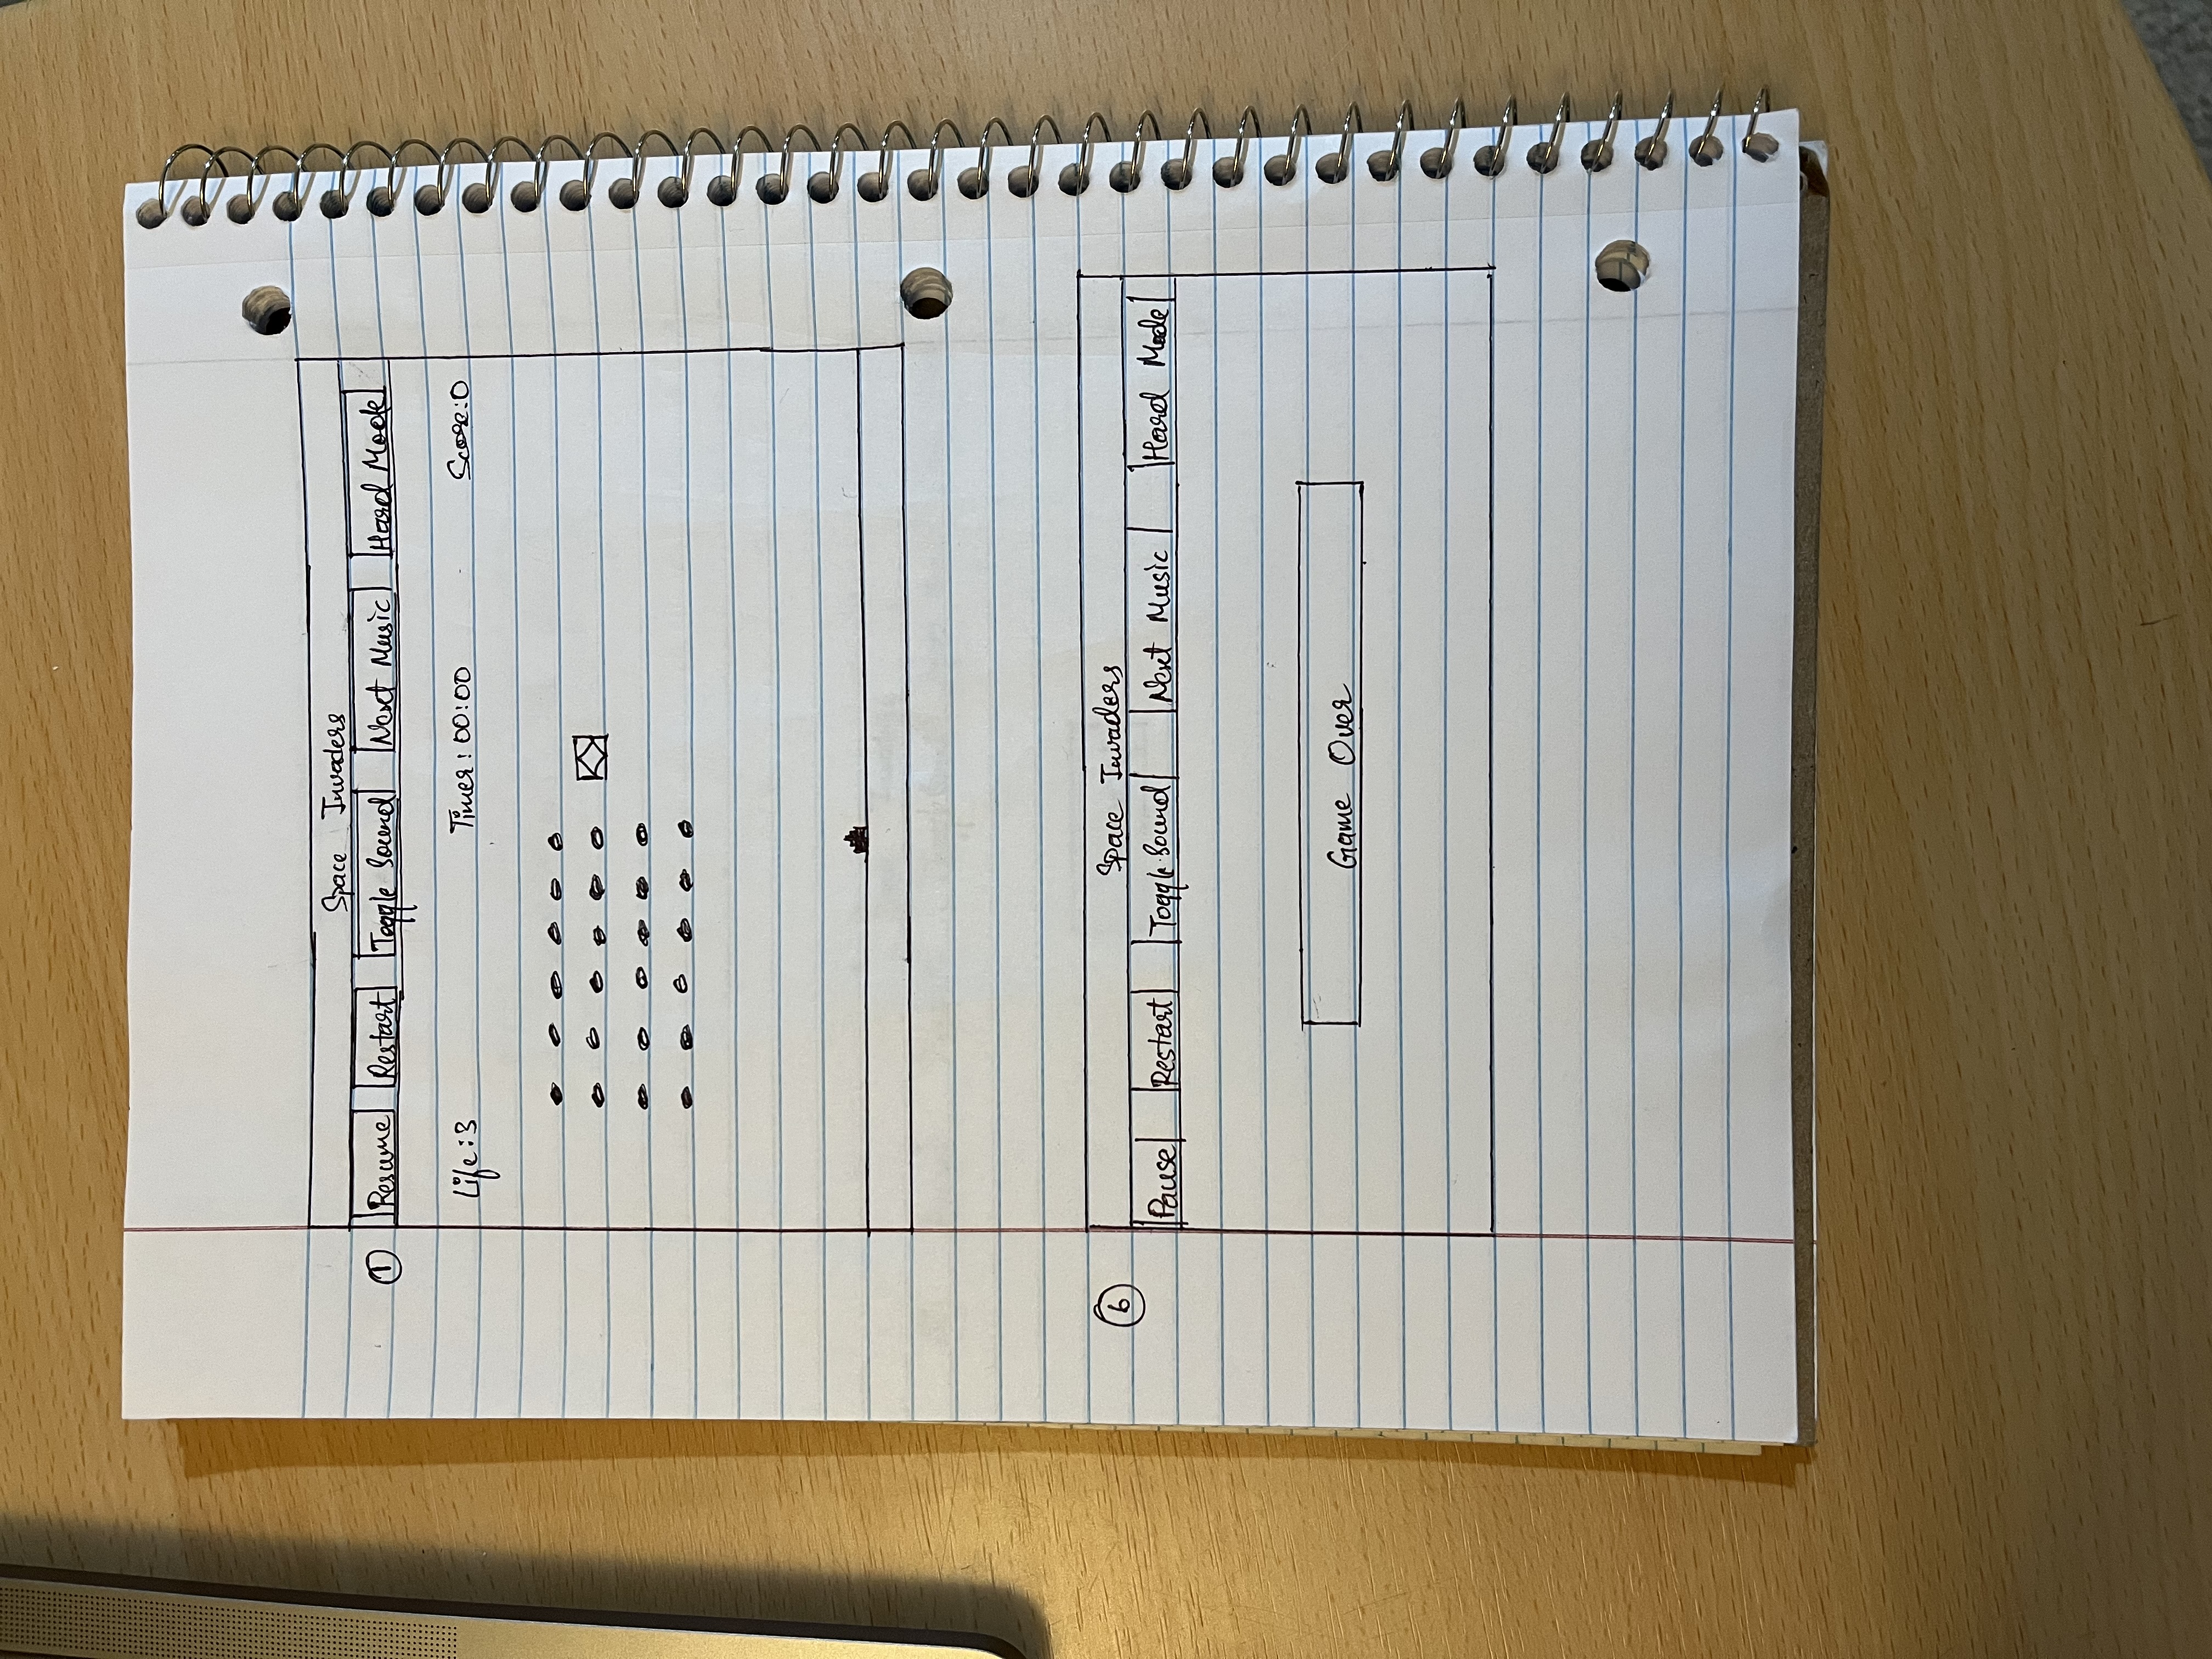 Space Invaders
① Resume Restart Toggle Sound Next Music Hard Mode
Life:3 Timer: 00:00 Score:0
⑥ Space Invaders
Pause Restart Toggle Sound Next Music Hard Mode
Game Over